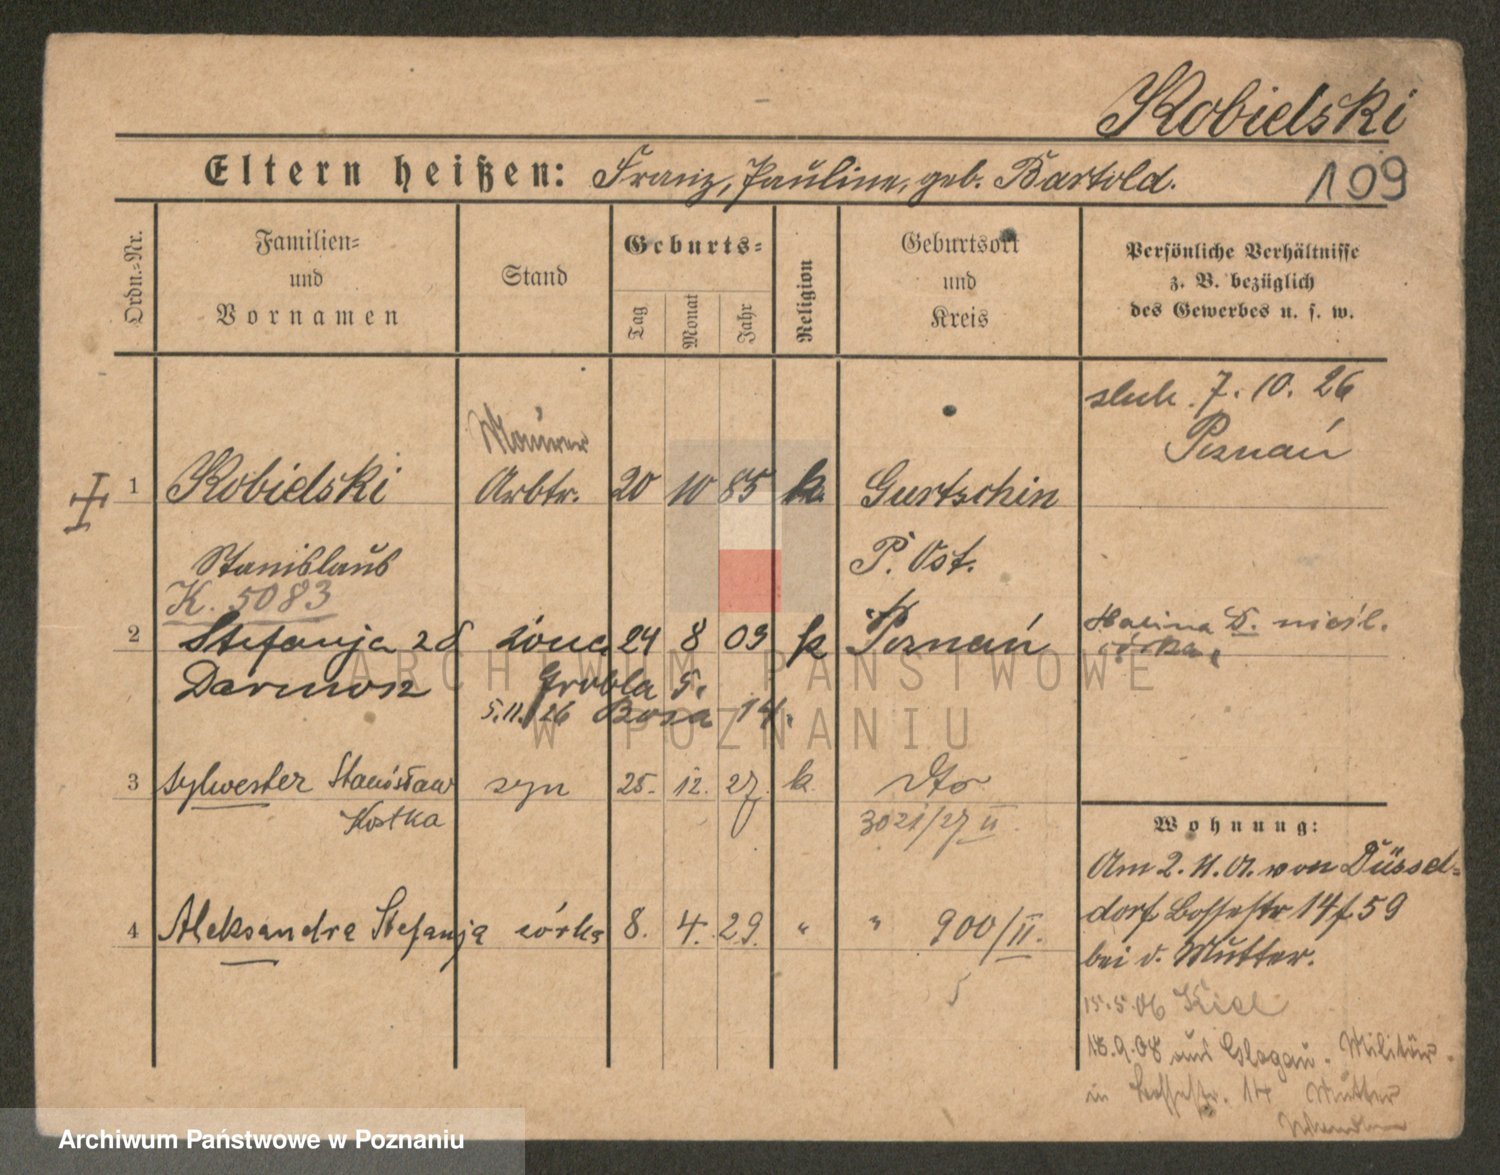 Kobielski
Eltern heißen: Franz, Pauline, geb. Bartold.
109
Ordn.=Nr.
Familien=
und
Vornamen
Stand
Geburts=
Tag
Monat
Jahr
Religion
Geburtsort
und
Kreis
Persönliche Verhältnisse
z. B. bezüglich
des Gewerbes u. s. w.
7. 10. 26
Poznań
Maurer
1 Kobielski Arbtr. 20 10 85 k. Gurtschin
Stanislaus P. Ost.
K. 5083
2 Stefanja żona 24 8 09 k Poznań
Halina D. córka
Grobla 5.
5.11.26 14.
3 Sylwester Stanisław syn 25. 12. 27. k. dto
Kostka 3021/27 II
Wohnung:
Am 2. 4. 01. von Düssel-
dorf 14 f. 59
bei d. Mutter.
4 Aleksandra Stefanja córka 8. 4. 29. " " 900/II.
15.5.06 Kiel
18.9.08 aus Glogau. Militär.
in 14 Mutter
ARCHIWUM PAŃSTWOWE
W POZNANIU
Archiwum Państwowe w Poznaniu